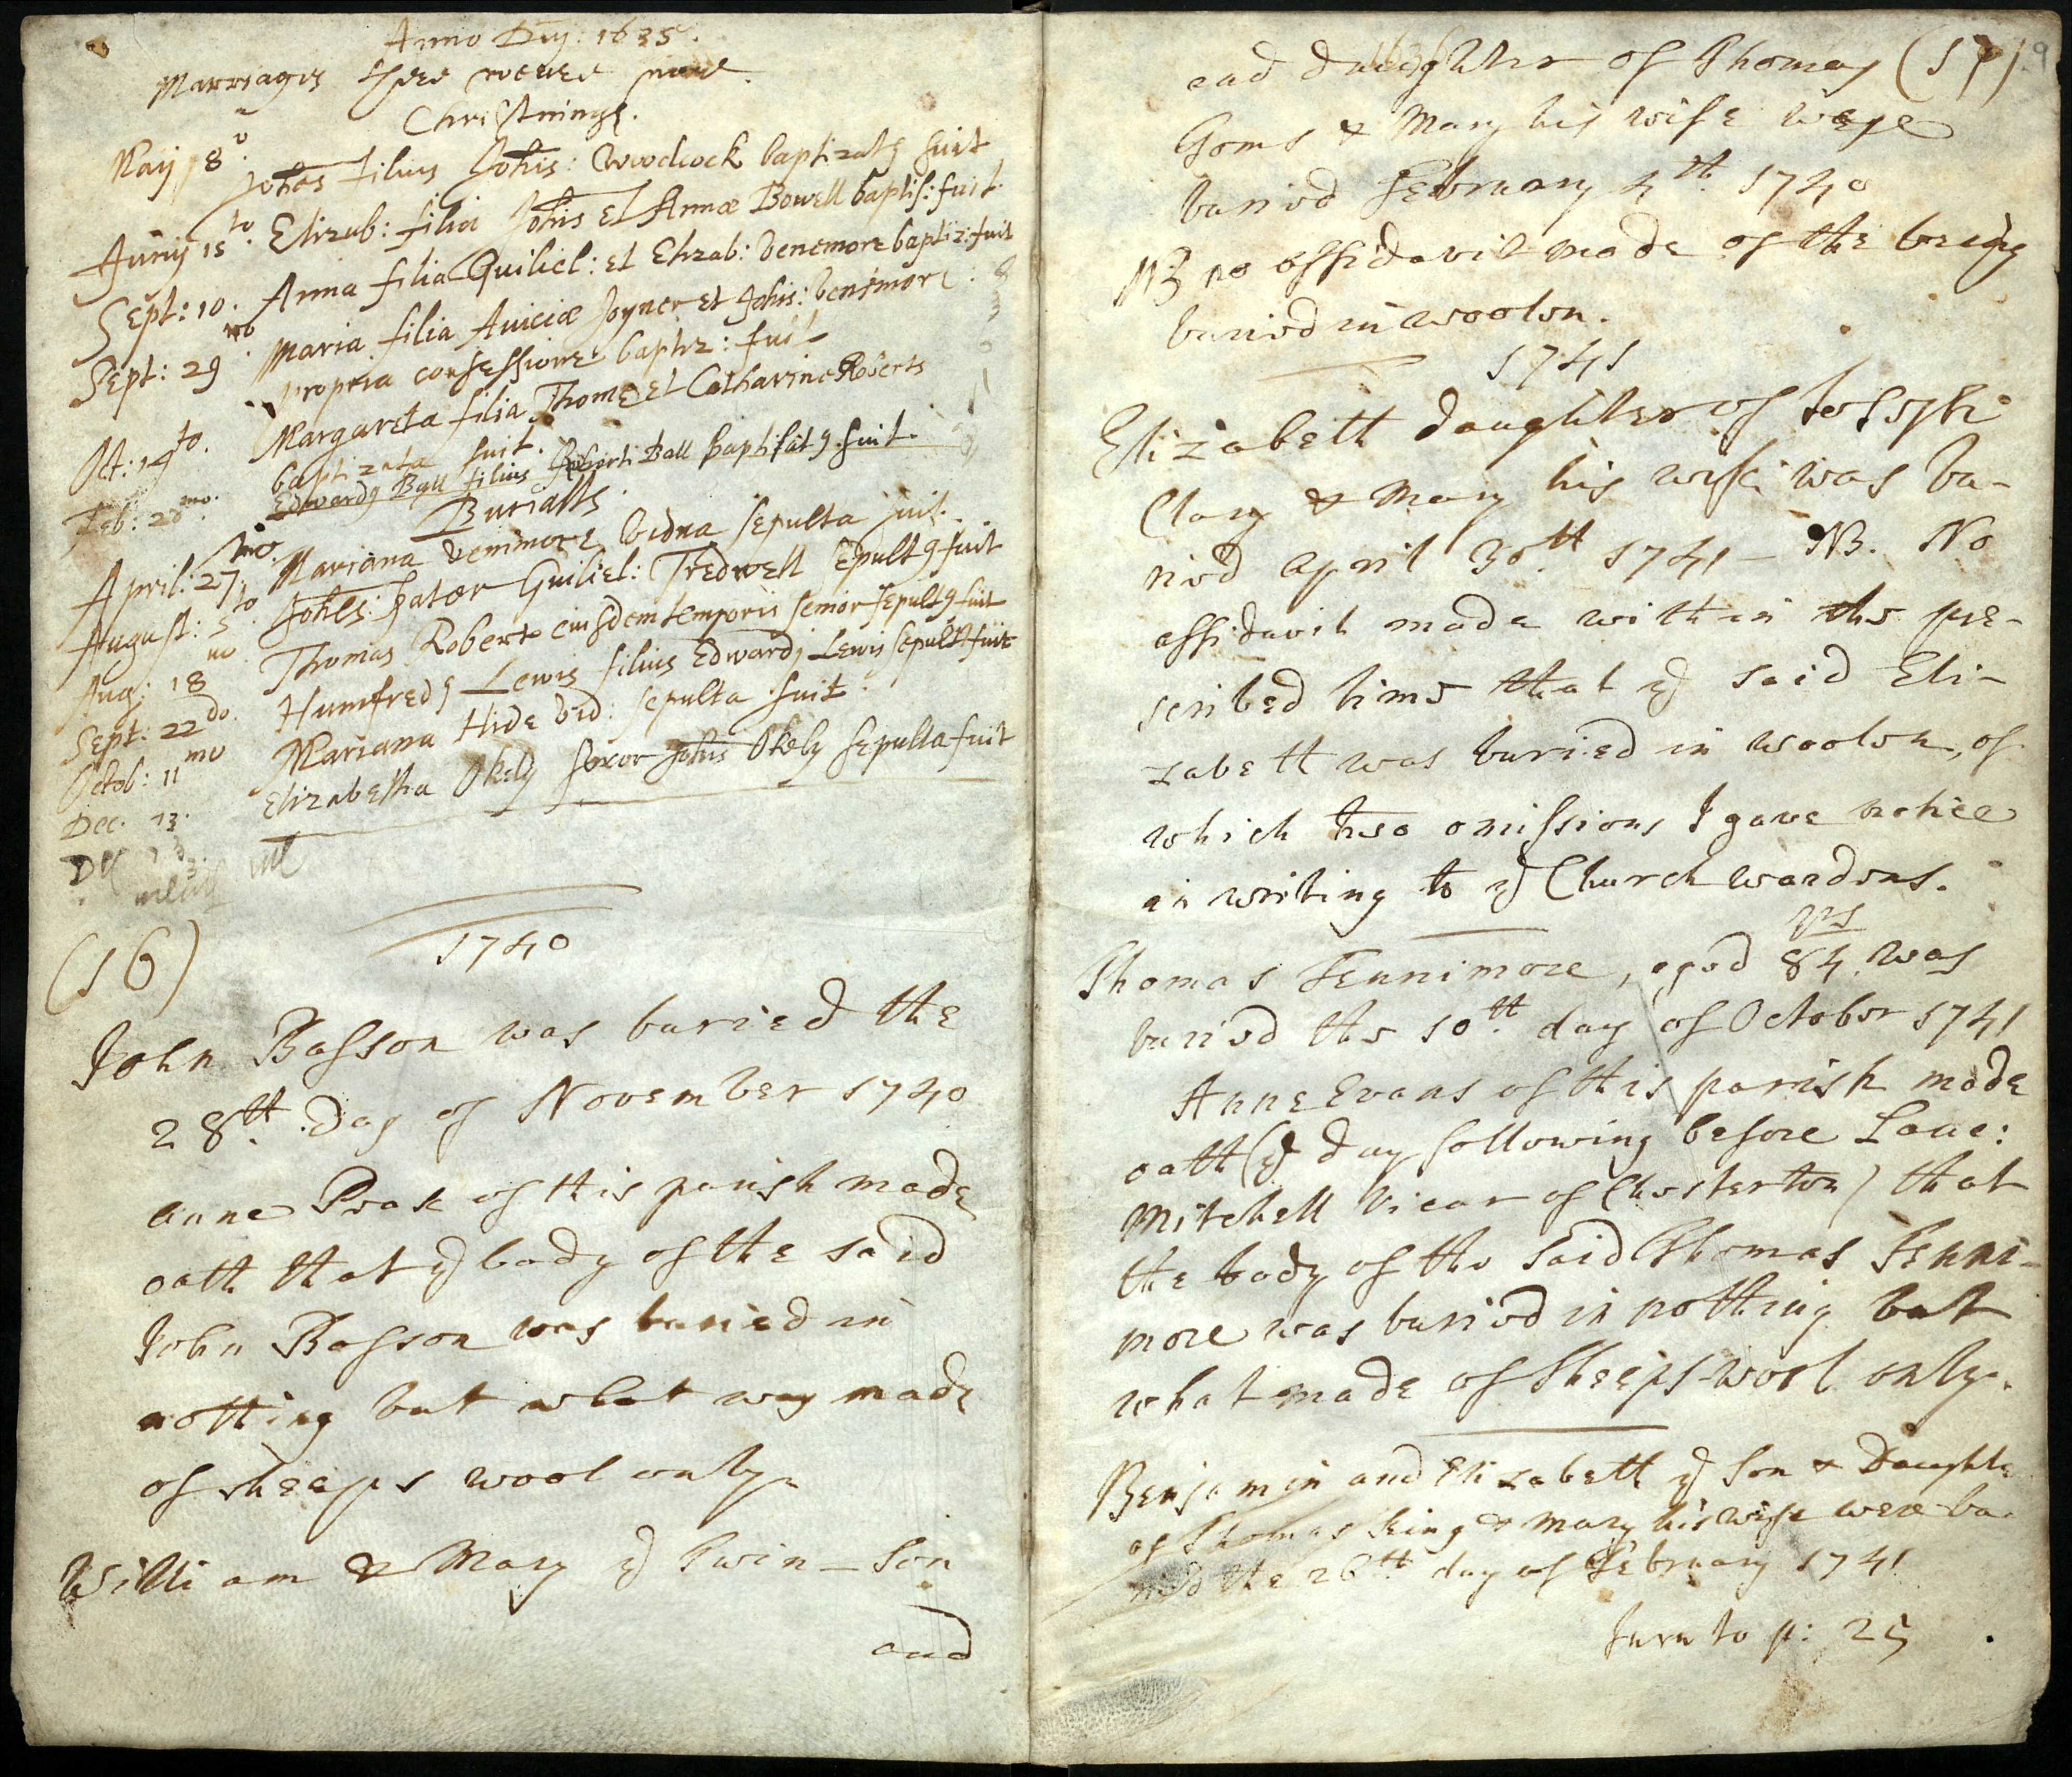 Anno Dnj: 1635.
Marriages there weare none.
Christnings.
Maij 8o. Johes filius Johis: Woodcock baptizatus fuit
Junij 15to. Elizab: filia Johis et Annæ Bowell baptis: fuit.
Sept: 10. Anna filia Guiliel: et Elizab: Venemore baptiz: fuit
Sept: 29no. Maria filia Aviciæ Joyner et Johis: Venimore:
propria confessione baptiz: fuit
Oct: 14to. Margareta filia Thomæ et Catharinæ Roberts
baptizata fuit.
Feb: 28mo. Edwardus Ball filius Roberti Ball baptisatus fuit.
Burialls.
April: 27mo. Mariana Venimore vidua sepulta fuit.
August: 5to. Johes: pater Guiliel: Tredwell sepultus fuit
Aug: 18vo Thomas Roberts eiusdem temporis senior sepultus fuit
Sept: 22do. Humfredus Lewis filius Edwardj Lewis sepultus fuit
Octob: 11mo Mariana Hide vid: sepulta fuit.
Dec. 13. Elizabetha Okely uxor Johis Okely sepulta fuit
(16)
1740
John Basson was buried the
28th. Day of November 1740
Anne Peak of this parish made
oath that ye body of the said
John Basson was buried in
nothing but what was made
of sheeps wool only.
William & Mary ye Twin-Son
and
and daughter of Thomas (17)
Goms & Mary his wife were
buried February 4th. 1740
NB no affidavit made of the being
buried in woolen.
1741
Elizabeth daughter of Joseph
Clary & Mary his wife was bu-
ried April 30th 1741 - NB. No
affidavit made within the pre-
scribed time that ye said Eli-
zabeth was buried in woolen, of
which two omissions I gave notice
in writing to ye Church wardens.
Thomas Fennimore, aged 84 yrs was
buried the 10th. day of October 1741
Anne Evans of this parish made
oath (ye day following before Lane:
Mitchell Vicar of Chesterton) that
the body of the said Thomas Fenni-
more was buried in nothing but
what made of Sheeps-wool only.
Benjamin and Elizabeth ye Son & Daughte
of Thomas King & Mary his wife were bu-
ried the 26th. day of February 1741
turn to p: 25